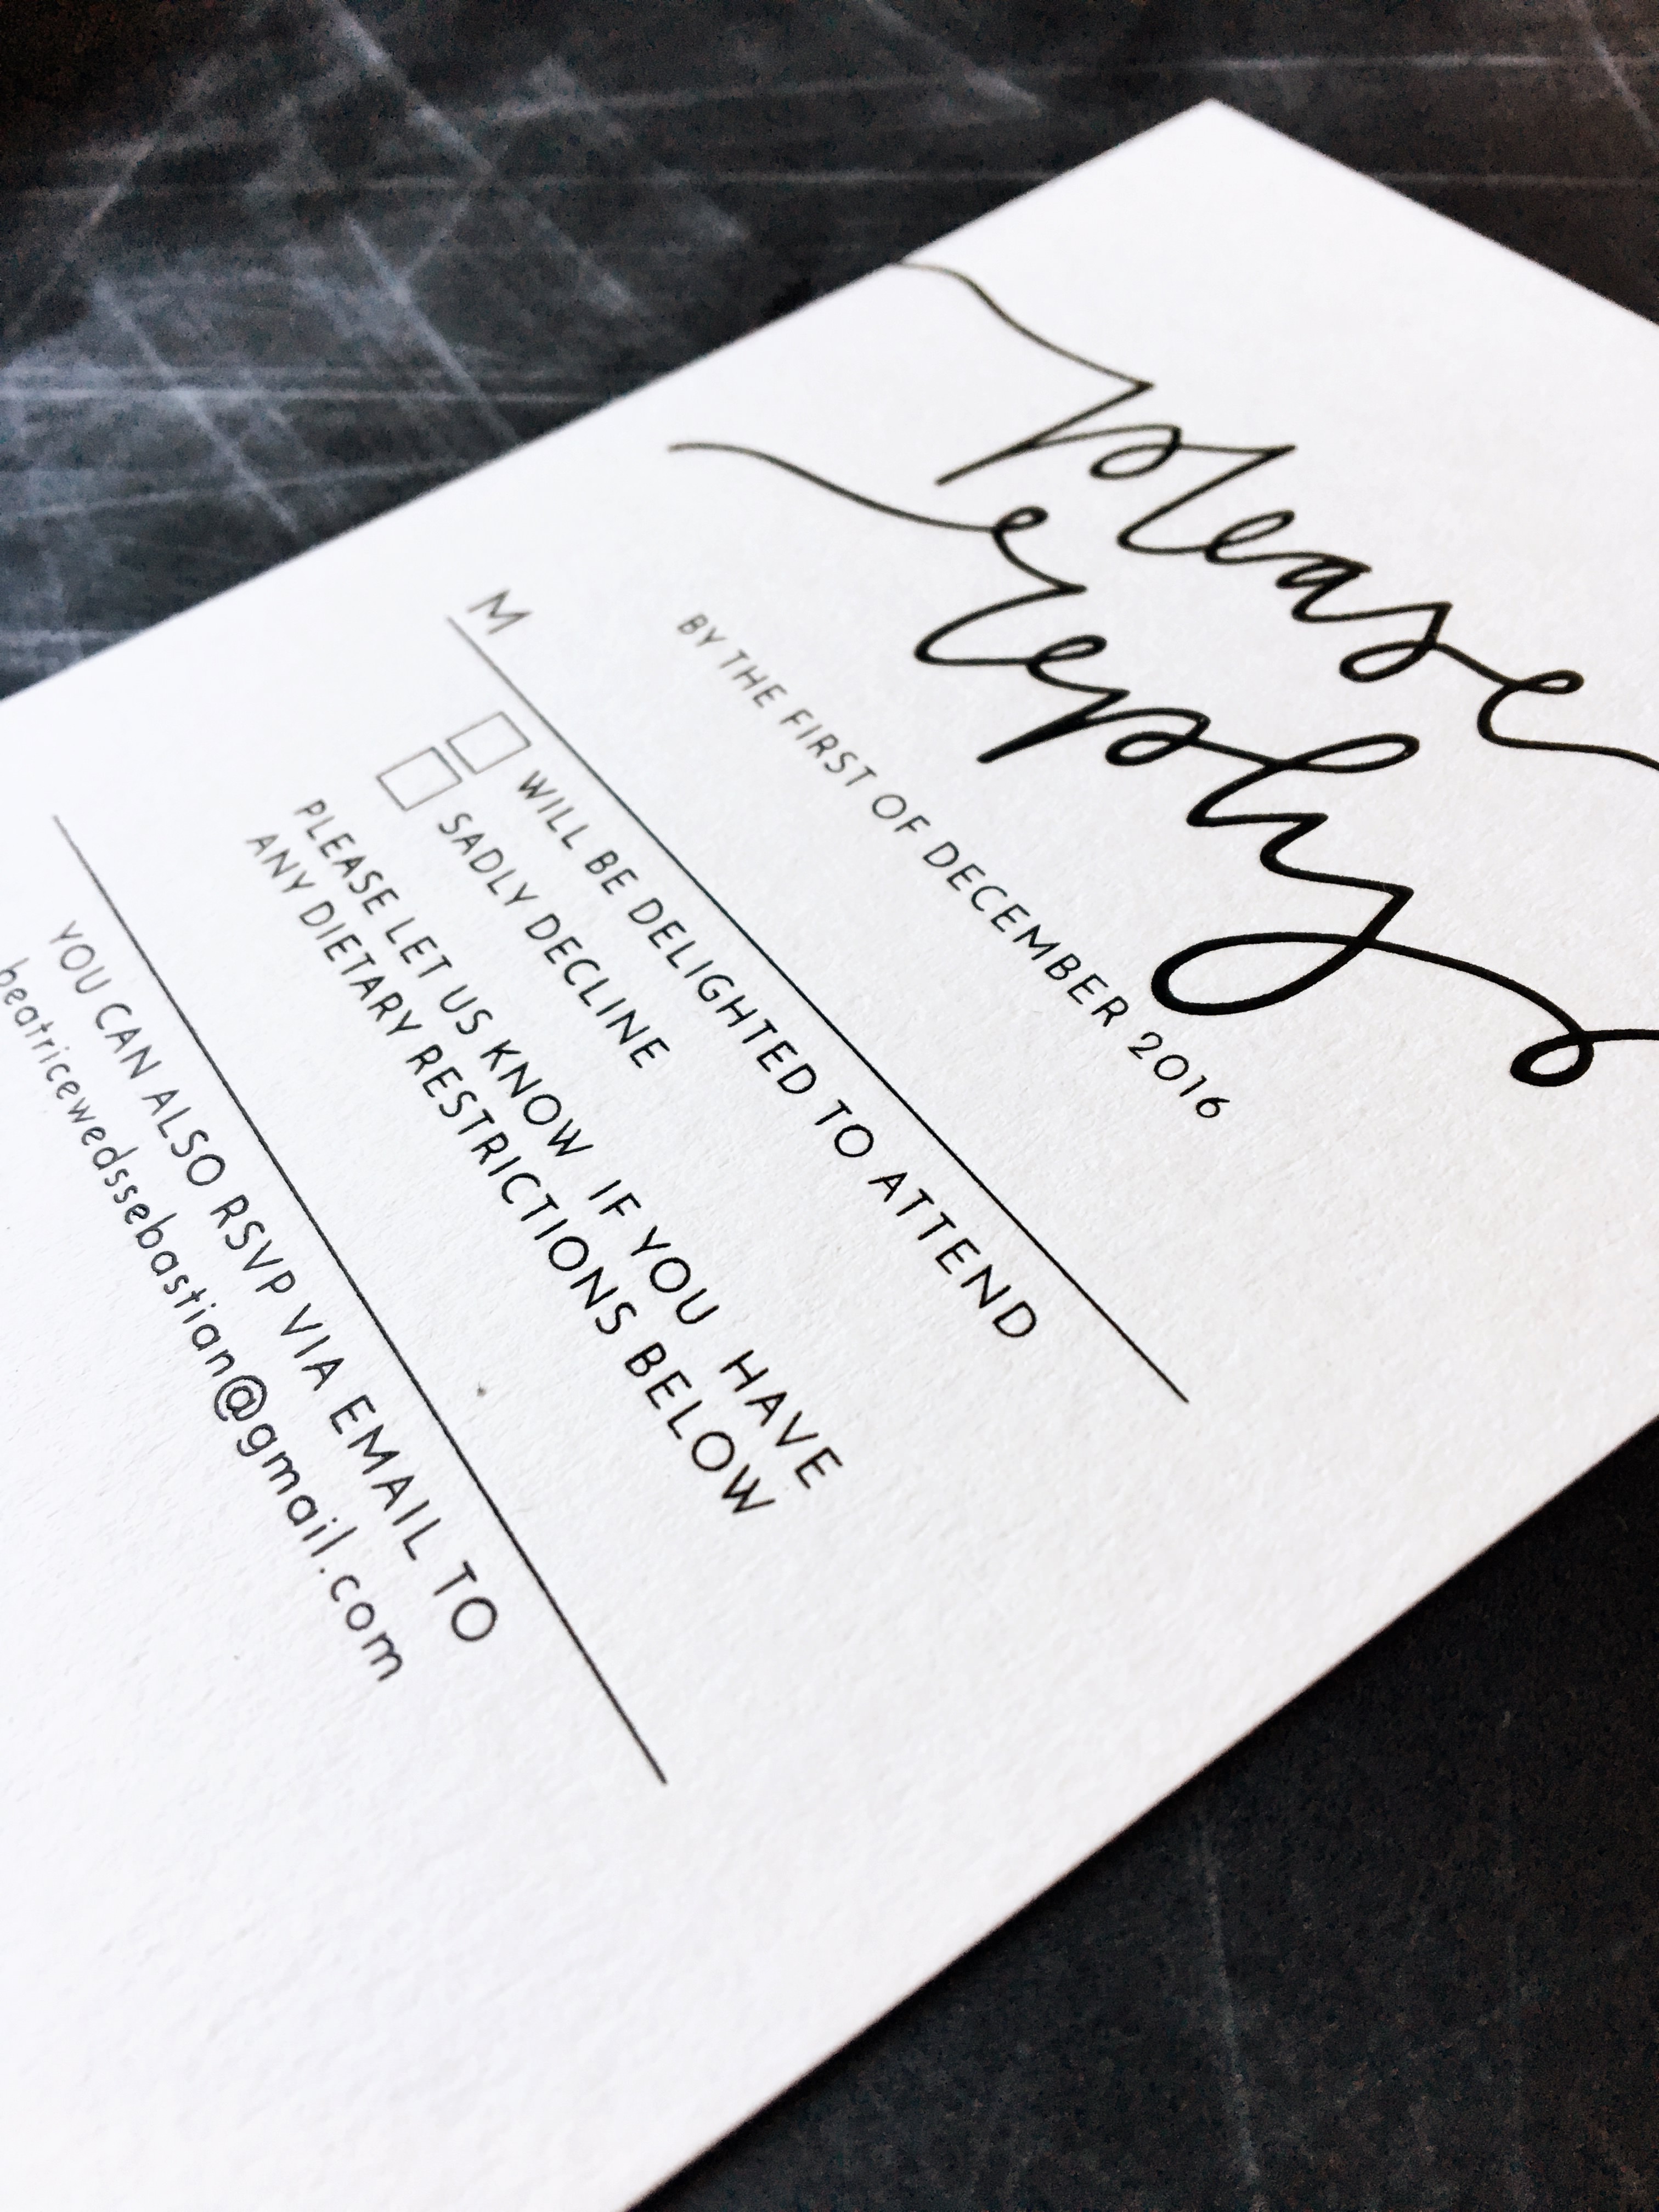 please
reply
BY THE FIRST OF DECEMBER 2016
M
WILL BE DELIGHTED TO ATTEND
SADLY DECLINE
PLEASE LET US KNOW IF YOU HAVE
ANY DIETARY RESTRICTIONS BELOW
YOU CAN ALSO RSVP VIA EMAIL TO
beatricewedssebastian@gmail.com